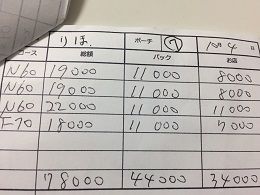 りほ ポーチ ⑦
コース 総額 バック お店
N60 19000 11000 8000
N60 19000 11000 8000
N60 22000 11000 11000
F70 18000 11000 7000
78000 44000 34000